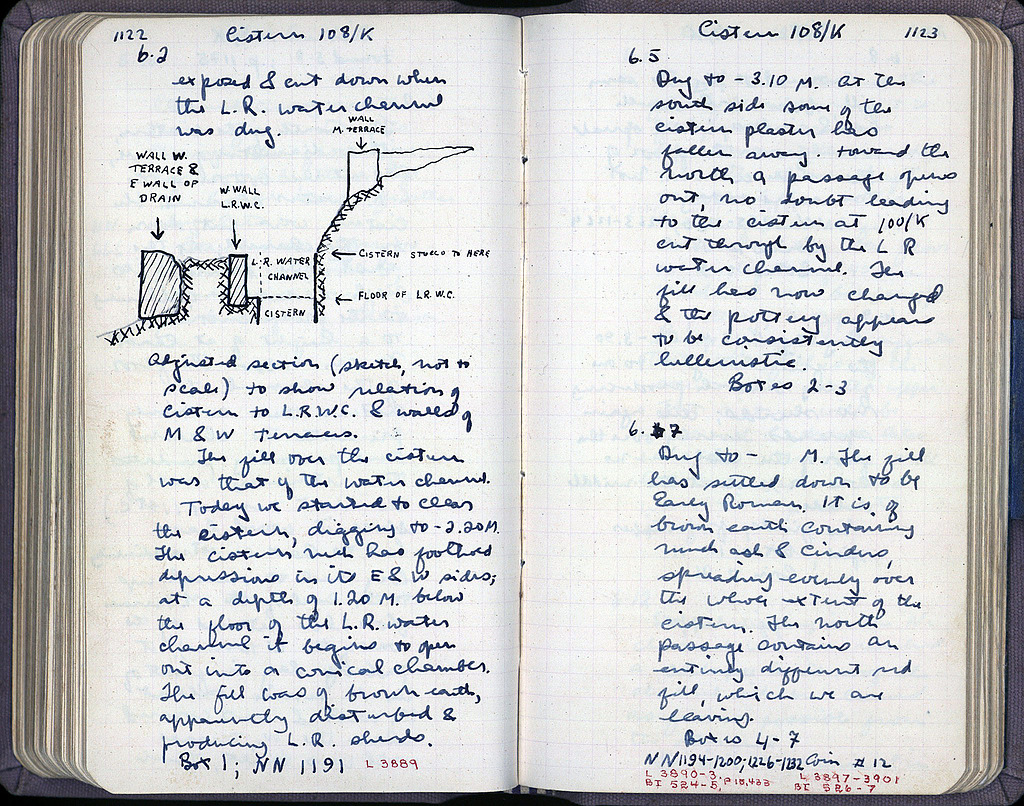 1122 Cistern 108/K
6.2
exposed & cut down when
the L.R. water channel
was dug.
WALL
M. TERRACE
WALL W.
TERRACE &
E WALL OF
DRAIN
W WALL
L.R.W.C.
L.R. WATER
CHANNEL
CISTERN STUCCO TO HERE
FLOOR OF L.R.W.C.
CISTERN
Adjusted section (sketch, not to
scale) to show relation of
cistern to L.R.W.C. & walls of
M & W terraces.
The fill over the cistern
was that of the water channel.
Today we started to clear
the cistern, digging to -2.20 M.
The cistern neck has foothold
depressions in its E & W sides;
at a depth of 1.20 M. below
the floor of the L.R. water
channel it begins to open
out into a conical chamber.
The fill was of brown earth,
apparently disturbed &
producing L.R. sherds.
Box 1; NN 1191 L 3889
Cistern 108/K 1123
6.5
Dug to -3.10 M. At the
south side some of the
cistern plaster has
fallen away. Toward the
north a passage opens
out, no doubt leading
to the cistern at 100/K
cut through by the L R
water channel. The
fill has now changed
& the pottery appears
to be consistently
hellenistic.
Boxes 2-3
6. 7
Dug to - M. The fill
has settled down to be
Early Roman. It is of
brown earth containing
much ash & cinders,
spreading evenly over
the whole extent of the
cistern. The north
passage contains an
entirely different red
fill, which we are
leaving.
Boxes 4-7
NN1194-1200; 1226-1232 Coin #12
L 3890-3, P 18,433 L 3897-3901
BI 524-5, BI 526-7